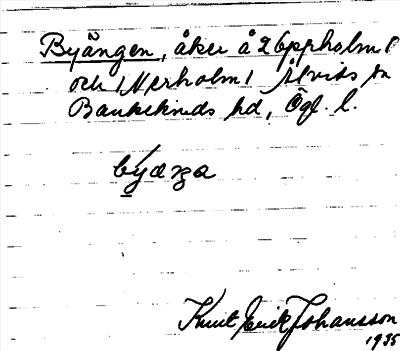 Byängen, åker å 2 Uppholm 1
och 1 Nerholm 1 Åtvids sn
Bankekinds hd, Ögl. l.
býæŋa
Knut Erik Johansson
1935